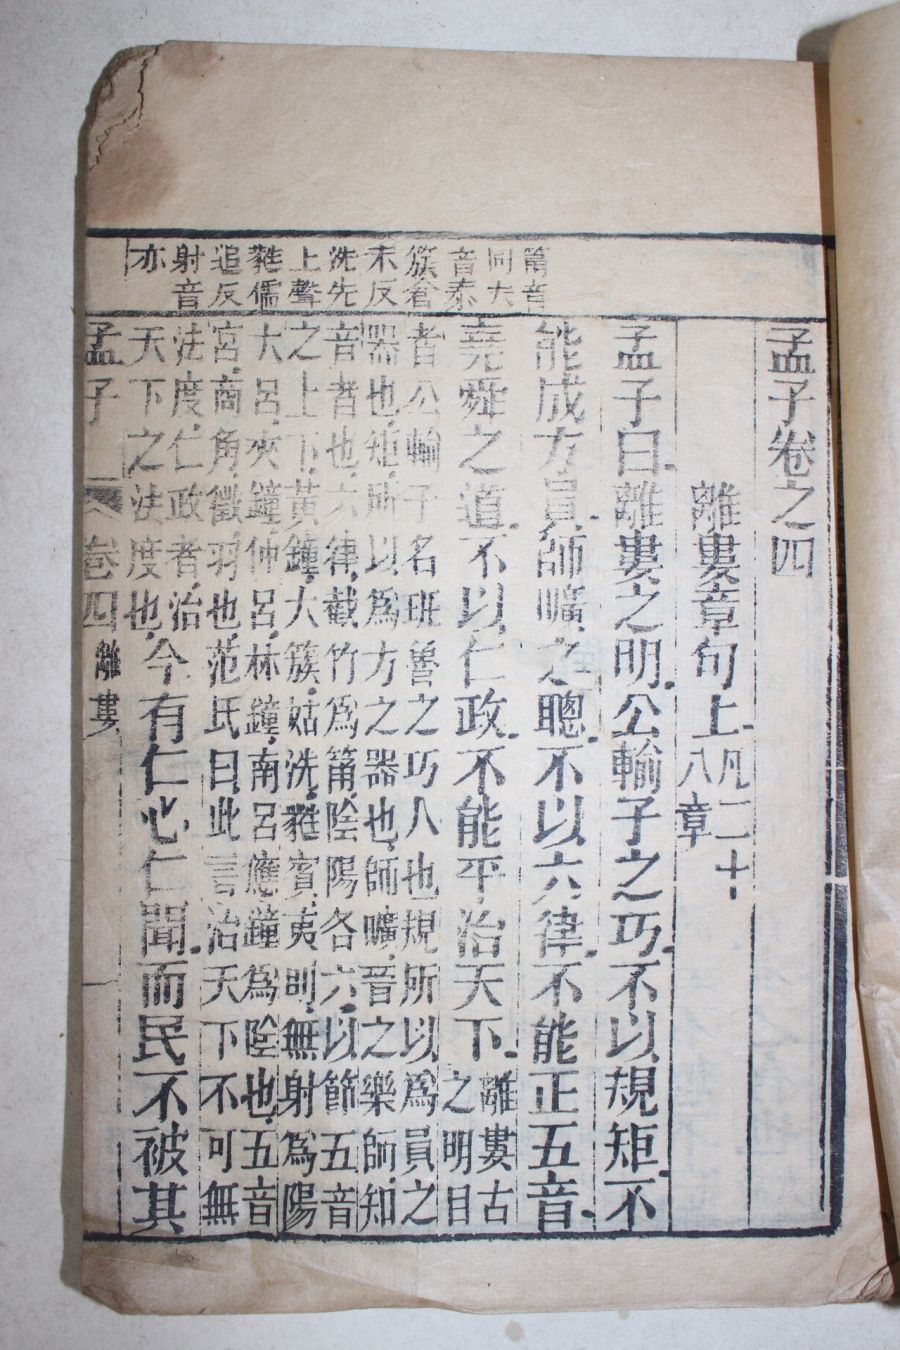 筩音
同大
音泰
簇倉
未反
洗先
上聲
蕤儒
追反
射音
亦
孟子卷之四
離婁章句上、凡二十
八章
孟子曰、離婁之明、公輸子之巧、不以規矩、不
能成方員、師曠之聰、不以六律、不能正五音、
堯舜之道、不以仁政、不能平治天下、離婁古
之明目
者公輸子名班魯之巧人也規所以爲員之
器也、矩、所以爲方之器也、師曠、晉之樂師、知
音者也、六律、截竹爲筩、陰陽各六、以節五音
之上下、黃鐘、大簇、姑洗、蕤賓、夷則、無射爲陽
大呂、夾鐘、仲呂、林鐘、南呂、應鐘、爲陰也、五音
宮、商、角、徵、羽也、范氏曰、此言治天下不可無
法度、仁政者、治
天下之法度也、
今有仁心仁聞、而民不被其
孟子 卷四 離婁 一